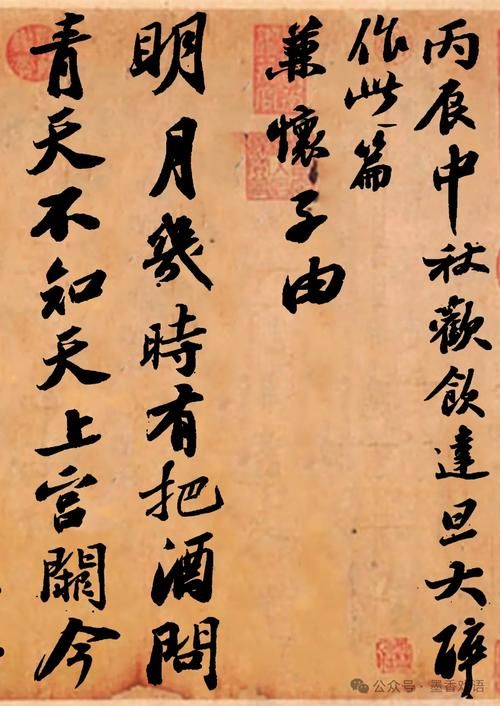 丙辰中秋歡飲達旦大醉
作此篇
兼懷子由
明月幾時有把酒問
青天不知天上宮闕今
公众号·墨香戏语